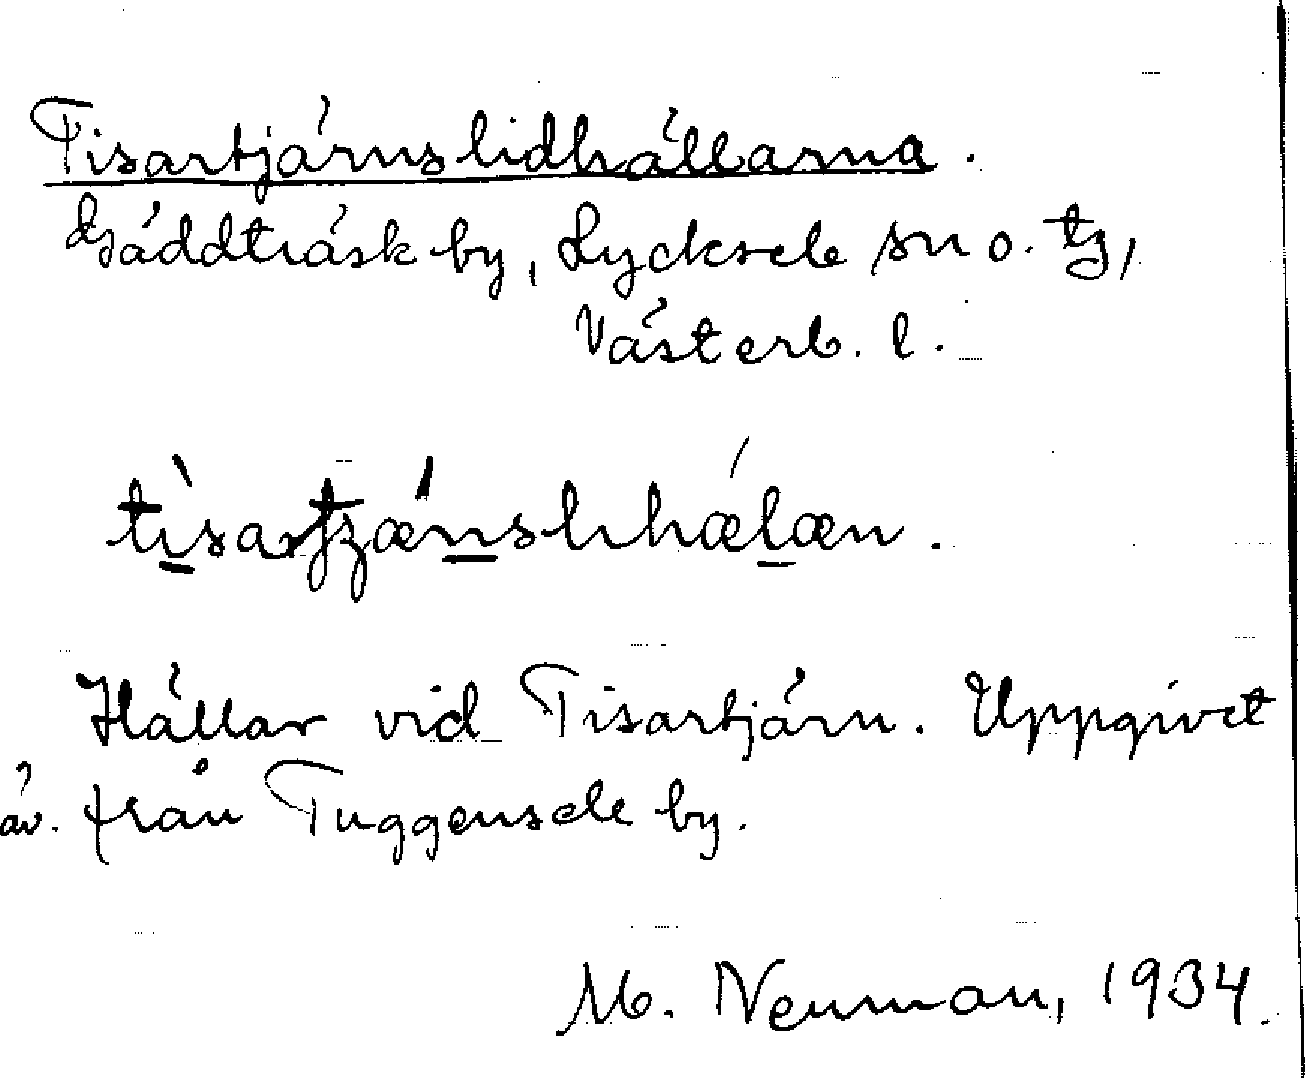 Tisartjärnslidhällarna.
Gäddträsk by, Lycksele sn o. tg,
Västerb. l.
tìsartʒǽnslıhǽlæn.
Hällar vid Tisartjärn. Uppgivet
av. från Tuggensele by.
M. Neuman, 1934.